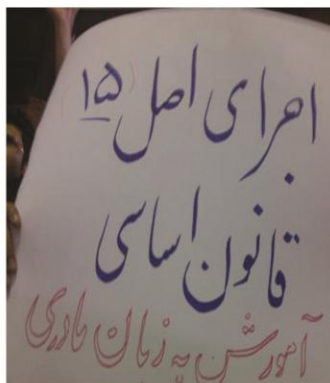 اجرای اصل (۱۵)
قانون اساسی
آموزش به زبان مادری